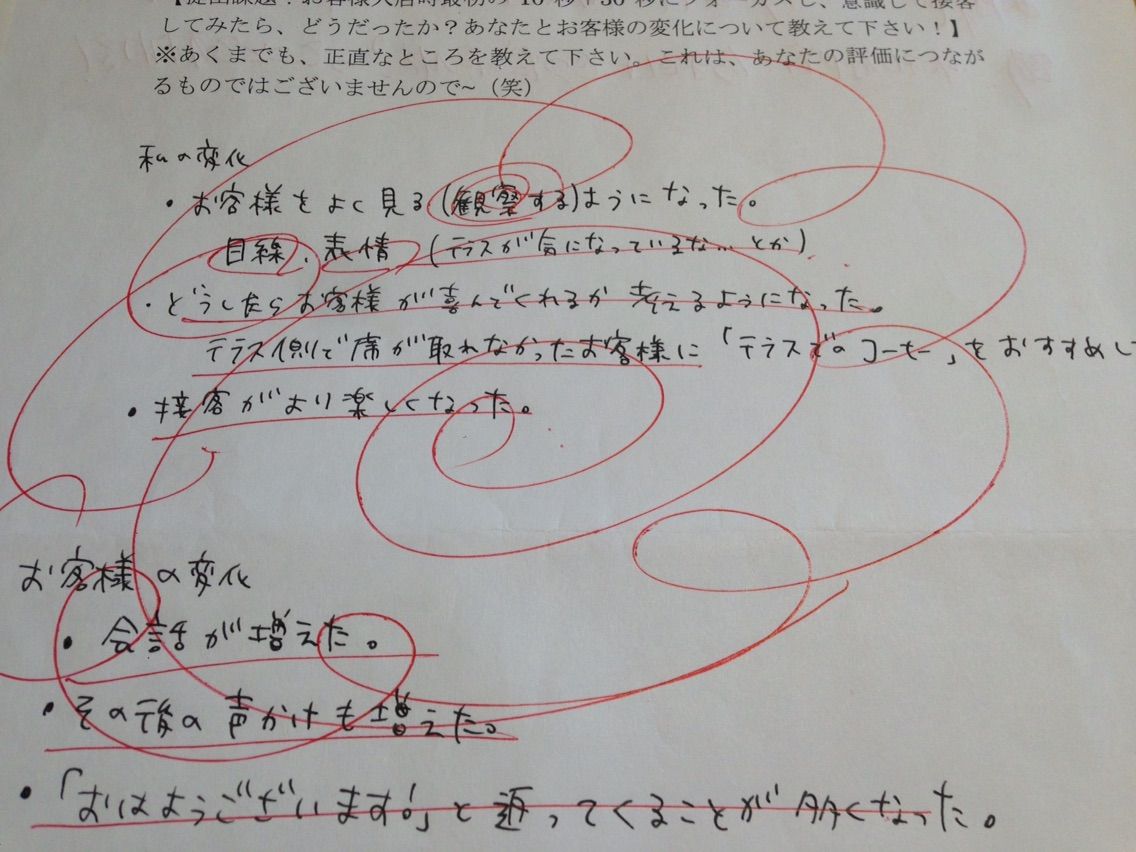 【提出課題：お客様入店時最初の10秒+30秒にフォーカスし、意識して接客
してみたら、どうだったか？あなたとお客様の変化について教えて下さい！】
※あくまでも、正直なところを教えて下さい。これは、あなたの評価につなが
るものではございませんので~（笑）
私の変化
・お客様をよく見る(観察する)ようになった。
目線、表情 (テラスが気になっているな…とか)
・どうしたらお客様が喜んでくれるか考えるようになった。
テラス側で席が取れなかったお客様に「テラスでのコーヒー」をおすすめし
・接客がより楽しくなった。
お客様の変化
・会話が増えた。
・その後の声かけも増えた。
・「おはようございます!」と返ってくることが多くなった。